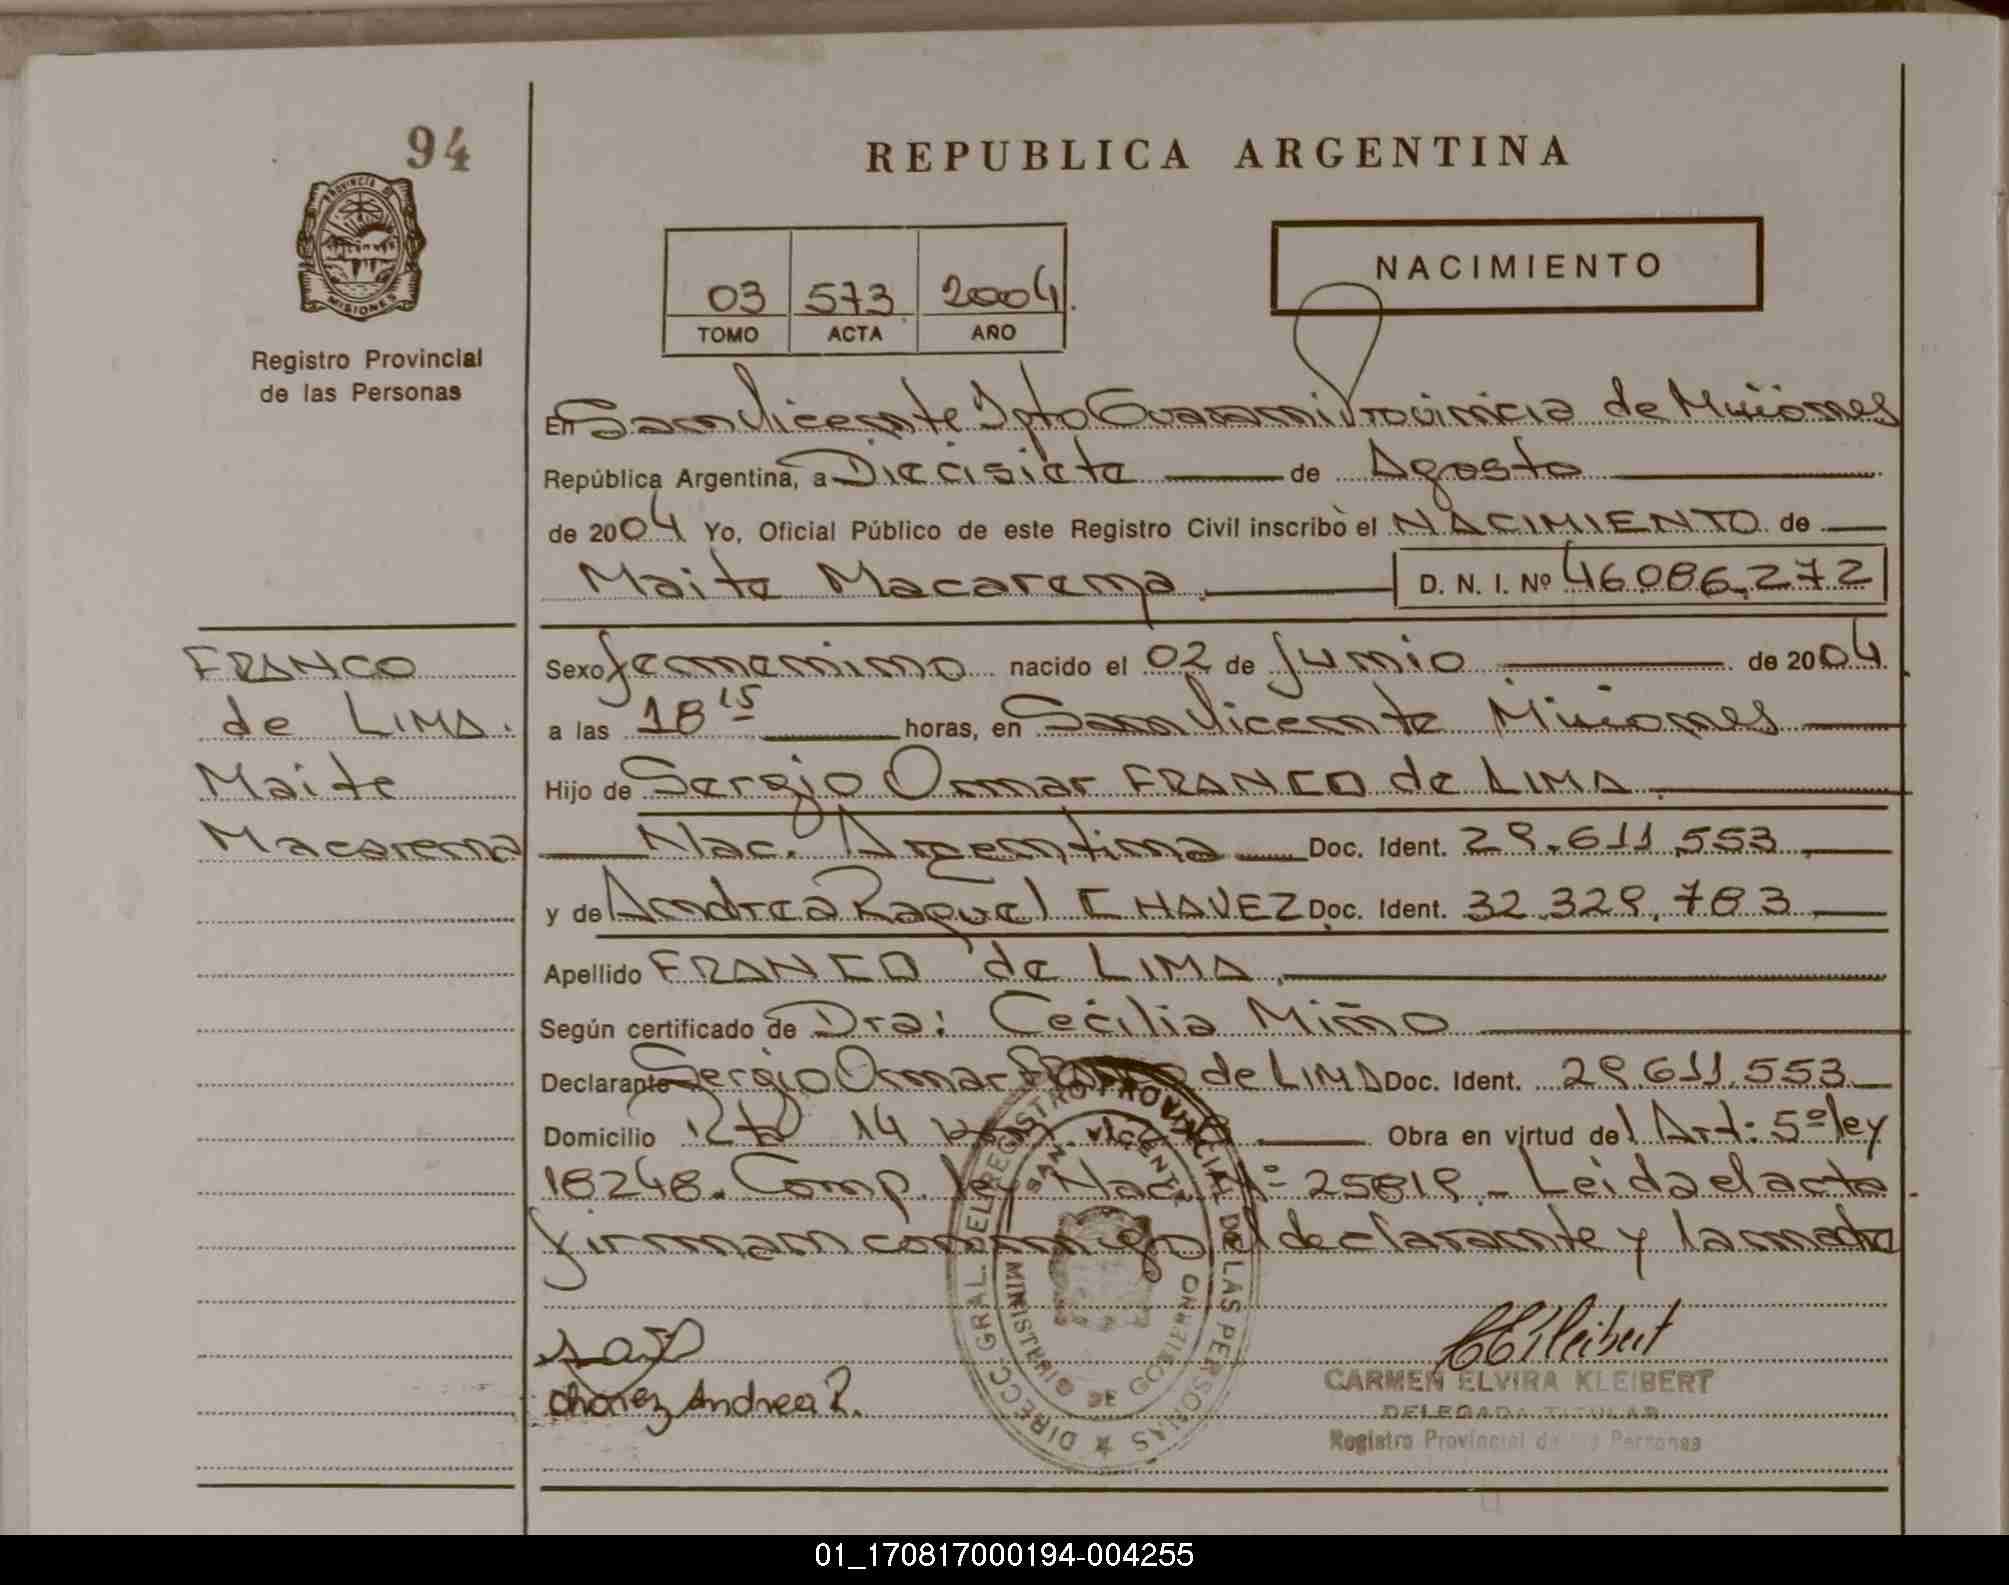 94
REPUBLICA ARGENTINA
PROVINCIA DE
MISIONES
Registro Provincial
de las Personas
03 573 2004
TOMO ACTA AÑO
NACIMIENTO
En San Vicente Dpto Guarani Provincia de Misiones
República Argentina, a Diecisiete de Agosto
de 2004 Yo, Oficial Público de este Registro Civil inscribo el NACIMIENTO de
Maite Macarena D. N. I. Nº 46.086.272
FRANCO
de LIMA.
Maite
Macarena
Sexo femenino nacido el 02 de Junio de 2004
a las 18 15 horas, en San Vicente Misiones
Hijo de Sergio Omar FRANCO de LIMA
Nac. Argentina Doc. Ident. 29.611.553
y de Andrea Raquel CHAVEZ Doc. Ident. 32.329.783
Apellido FRANCO de LIMA
Según certificado de Dra: Cecilia Miño
Declarante Sergio Omar Franco de LIMA Doc. Ident. 29.611.553
Domicilio Rta 14 Obra en virtud del Art: 5º ley
18248. Comp. ley Nac. Nº 25819 - Leida el acta
firman conmigo el declarante y la madre
DIRECC. GRAL. EL REGISTRO PROVINCIAL DE LAS PERSONAS
SAN VICENTE
MINISTERIO DE GOBIERNO
CEKleibert
CARMEN ELVIRA KLEIBERT
DELEGADA TITULAR
Registro Provincial de las Personas
Chavez Andrea R.
01_170817000194-004255